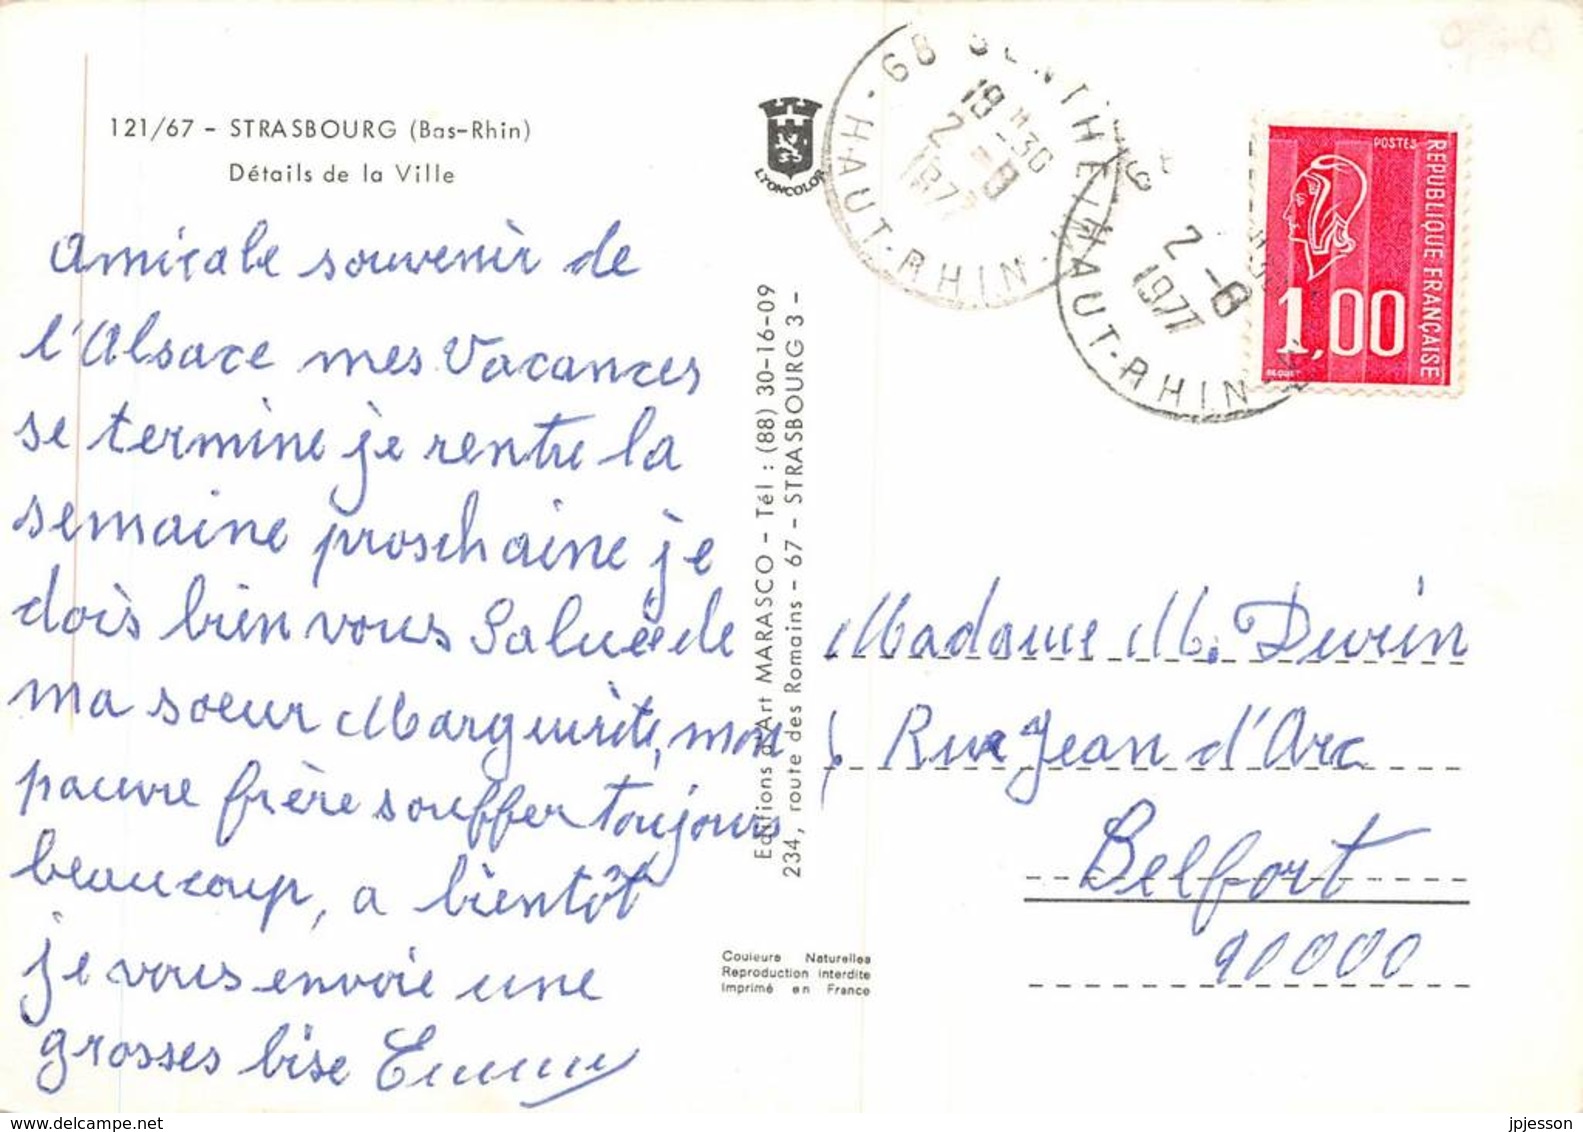 121/67 - STRASBOURG (Bas-Rhin)
Détails de la Ville
LYONCOLOR
amicale souvenir de
l'Alsace mes Vacances
se termine je rentre la
semaine proschaine je
dois bien vous Saluée de
ma soeur Marguerite, mon
pauvre frère souffer toujours
beaucoup, a bientôt
je vous envoie une
grosses bise Emma
Editions d'Art MARASCO - Tél : (88) 30-16-09
234, route des Romains - 67 - STRASBOURG 3 -
Couleurs Naturelles
Reproduction interdite
Imprimé en France
68 SENTHEIM
18 H -30
2 -8
1977
HAUT-RHIN
2 -8
1977
HAUT-RHIN
POSTES
REPUBLIQUE FRANÇAISE
1,00
BEQUET
Madame M. Durin
Rue Jean d'Arc
Belfort
90000
delcampe.net
jpjesson